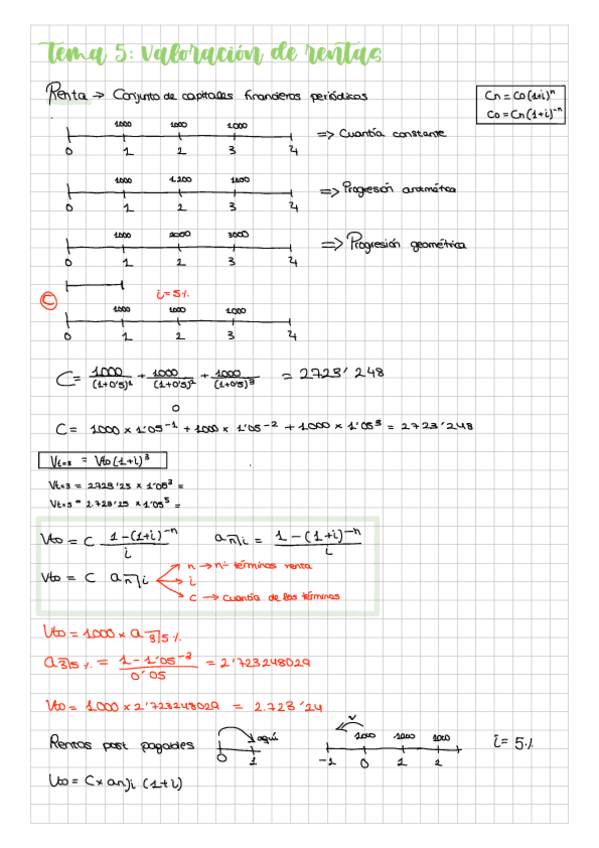 Tema 5: Valoración de rentas
Renta → Conjunto de capitales financieros periódicos
Cn = Co(1+i)^n
Co = Cn(1+i)^-n
1000 1000 1.000
0 1 2 3 4
=> Cuantía constante
1000 1.200 1400
0 1 2 3 4
=> Progresión aritmética
1000 2000 3000
0 1 2 3 4
=> Progresión geométrica
C
i=5%
1000 1000 1.000
0 1 2 3 4
C = 1000/(1+0'5)^1 + 1000/(1+0'5)^2 + 1000/(1+0'5)^3 = 2723'248
o
C = 1000 × 1'05^-1 + 1000 × 1'05^-2 + 1.000 × 1'05^3 = 2723'248
Vt=3 = Vto(1+i)^3
Vt=3 = 2723'25 × 1'05^3 =
Vt=5 = 2.723'25 × 1'05^5 =
Vto = C 1-(1+i)^-n / i
an¬i = 1-(1+i)^-n / i
Vto = C an¬i
n → nº términos renta
i
C → cuantía de los términos
Vto = 1000 × a3¬5%
a3¬5% = 1-1'05^-3 / 0'05 = 2'723248029
Vto = 1.000 × 2'723248029 = 2.723'24
Rentas post pagables
aquí
0 1
v
1000 1000 1000
-1 0 1 2
i = 5%
Vto = C × an¬i (1+i)